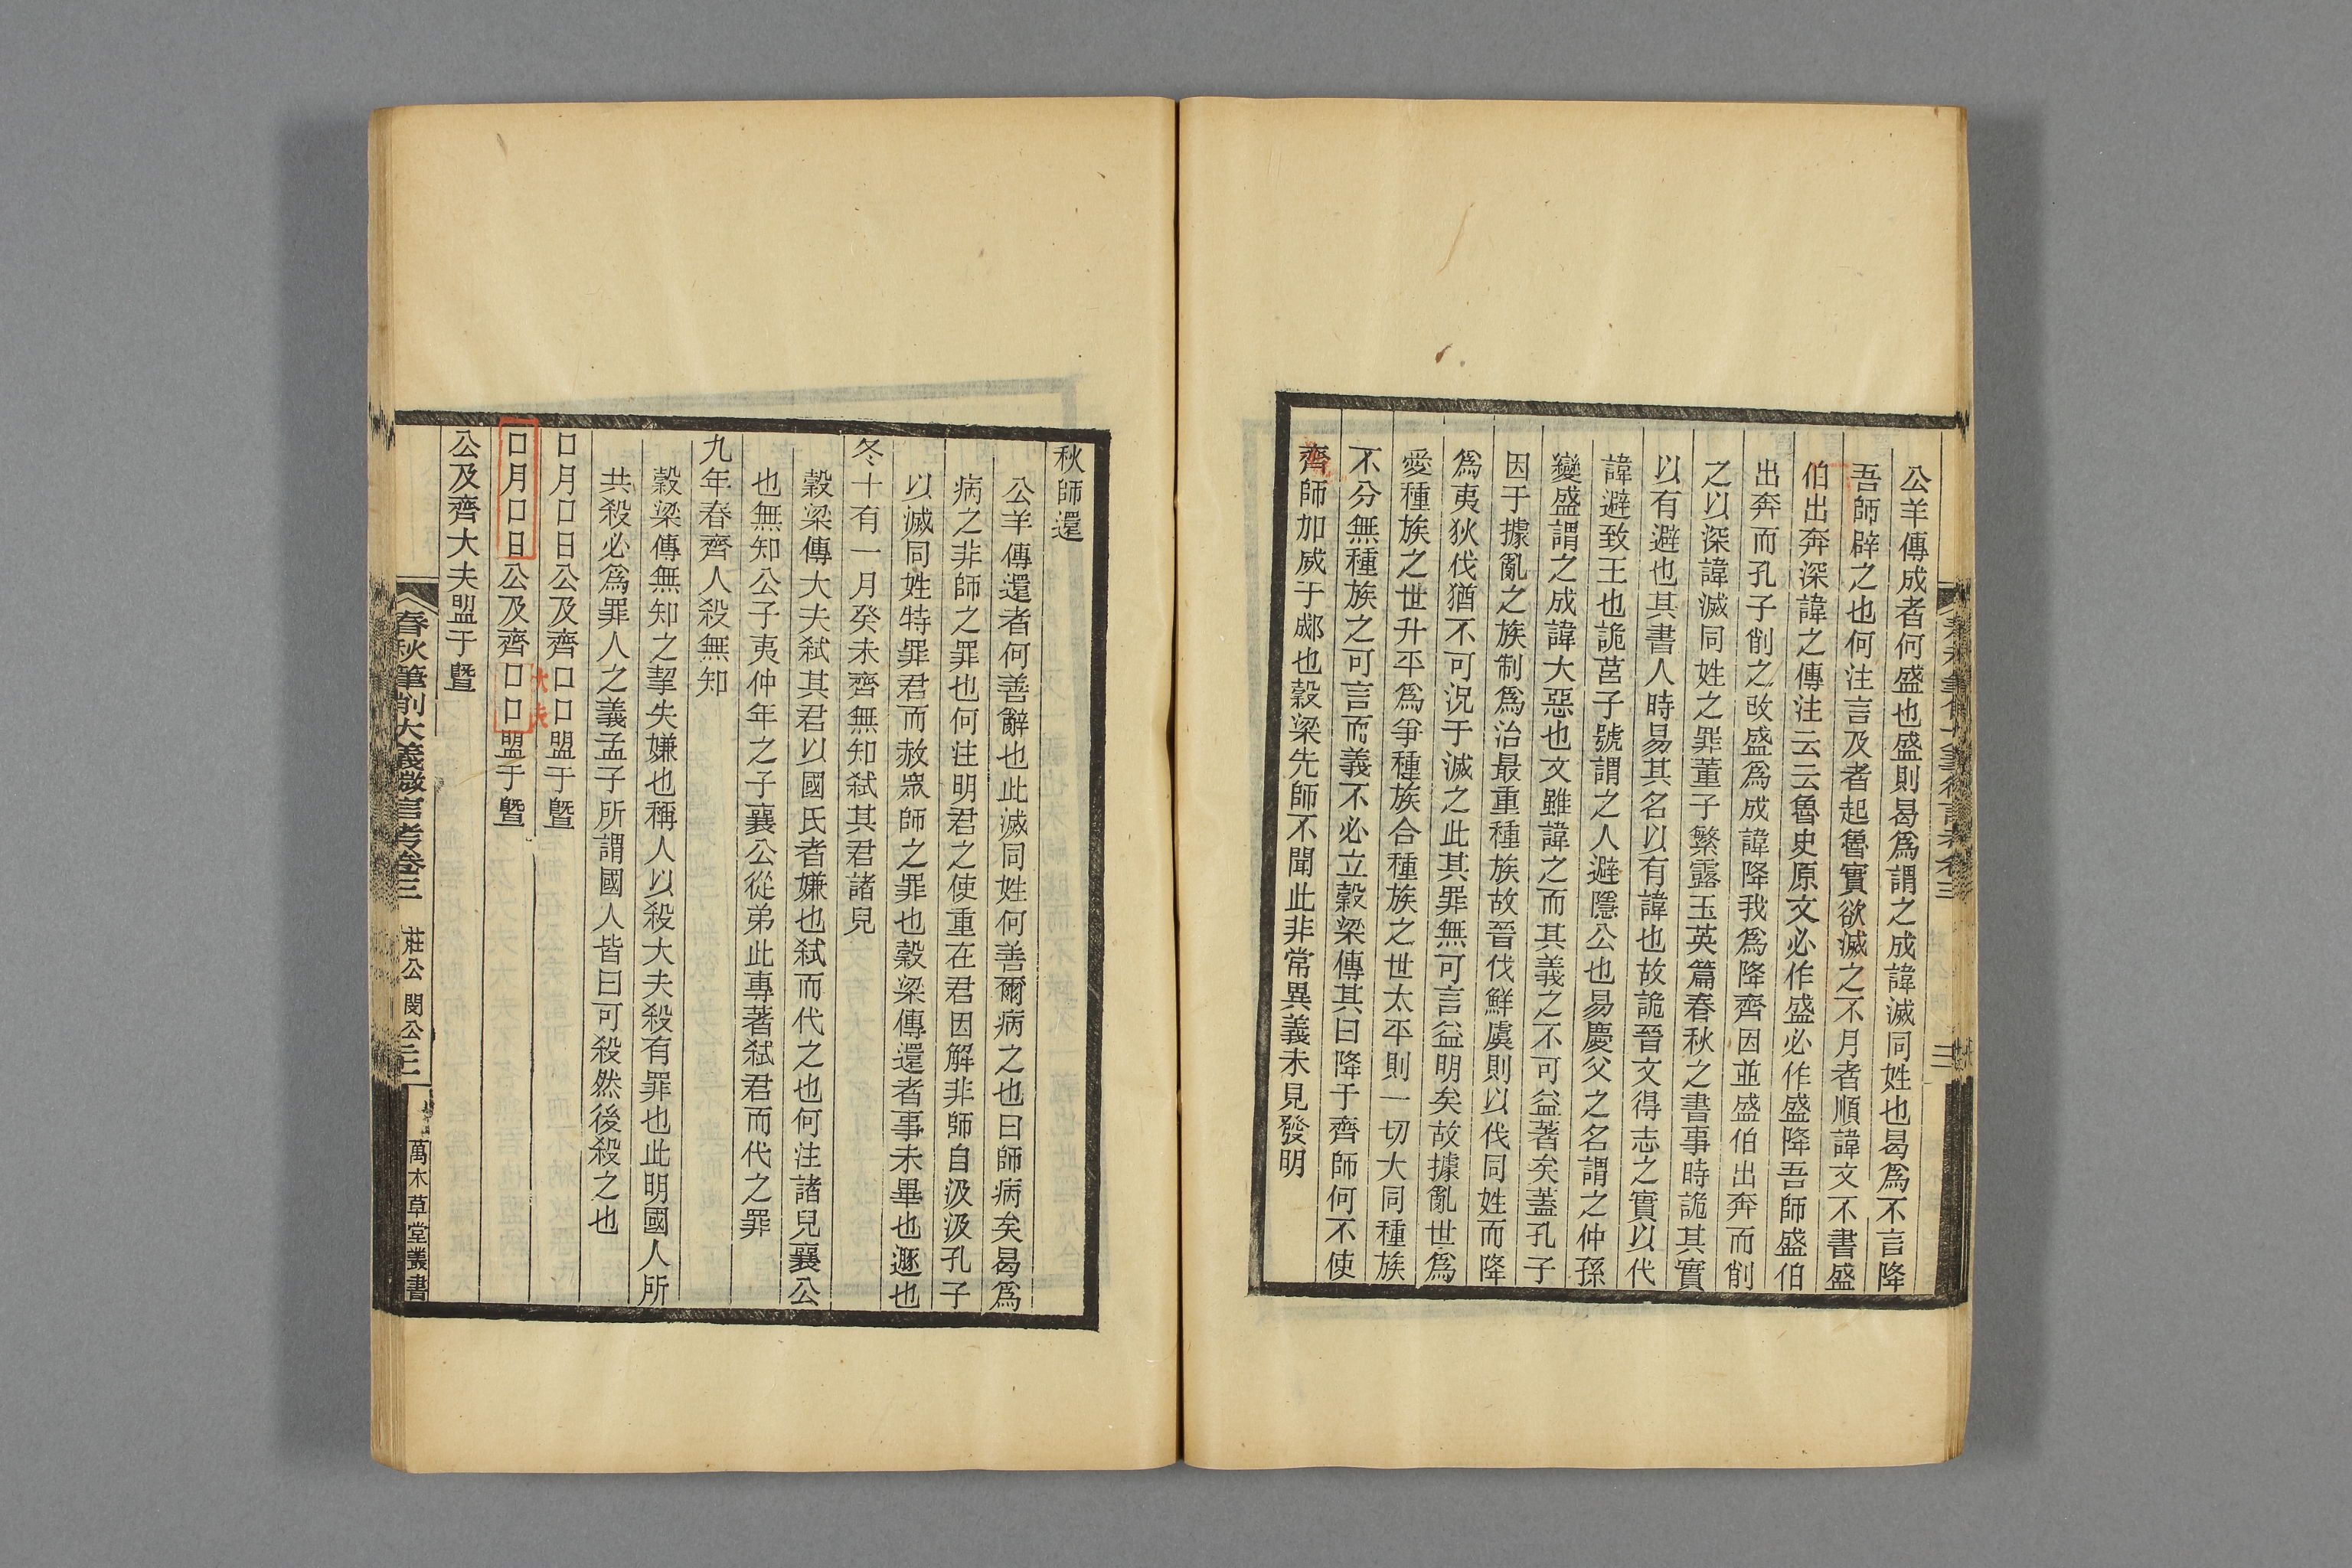 公羊傳成者何盛也盛則曷爲謂之成諱滅同姓也曷爲不言降
吾師辟之也何注言及者起魯實欲滅之不月者順諱文不書盛
伯出奔深諱之傳注云云魯史原文必作盛必作盛降吾師盛伯
出奔而孔子削之改盛爲成諱降我爲降齊因並盛伯出奔而削
之以深諱滅同姓之罪董子繁露玉英篇春秋之書事時詭其實
以有避也其書人時易其名以有諱也故詭晉文得志之實以代
諱避致王也詭莒子號謂之人避隱公也易慶父之名謂之仲孫
變盛謂之成諱大惡也文雖諱之而其義之不可益著矣蓋孔子
因于據亂之族制爲治最重種族故晉伐鮮虞則以伐同姓而降
爲夷狄伐猶不可況于滅之此其罪無可言益明矣故據亂世爲
愛種族之世升平爲爭種族合種族之世太平則一切大同種族
不分無種族之可言而義不必立穀梁傳其曰降于齊師何不使
齊師加威于郕也穀梁先師不聞此非常異義未見發明
秋師還
公羊傳還者何善辭也此滅同姓何善爾病之也曰師病矣曷爲
病之非師之罪也何注明君之使重在君因解非師自汲汲孔子
以滅同姓特罪君而赦眾師之罪也穀梁傳還者事未畢也遯也
冬十有一月癸未齊無知弑其君諸兒
穀梁傳大夫弑其君以國氏者嫌也弑而代之也何注諸兒襄公
也無知公子夷仲年之子襄公從弟此專著弑君而代之罪
九年春齊人殺無知
穀梁傳無知之挈失嫌也稱人以殺大夫殺有罪也此明國人所
共殺必爲罪人之義孟子所謂國人皆曰可殺然後殺之也
口月口日公及齊口口盟于暨
口月口日公及齊口口盟于暨
大夫
公及齊大夫盟于暨
春秋筆削大義微言考卷三 莊公 閔公 三二
萬木草堂叢書